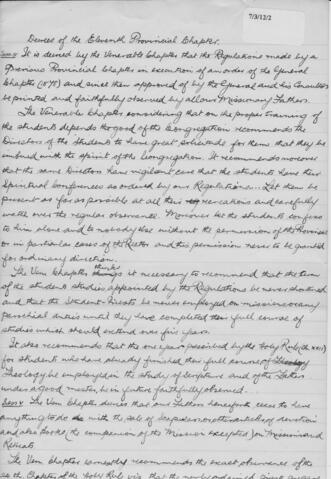 7/3/12/2
Decrees of the Eleventh Provincial Chapter.
It is decreed by the Venerable Chapter that the Regulations made by a
previous Provincial Chapter in execution of an order of the General
Chapter and since then approved of by the General and his Consultors
be printed and faithfully observed by all our Missionary Fathers.
The Venerable Chapter considering that on the proper training of
the students depends the good of the Congregation recommends the
Directors of the students to have great solicitude for them that they be
imbued with the spirit of the Congregation. It recommends moreover
that the same Directors have vigilant care that the students have their
Spiritual Conferences as ordered by our Regulations. Let them be
present as far as possible at all their recreations and carefully
watch over the regular observance. Moreover let the students confess
to him alone and to nobody else without the permission of the Provincial
or in particular cases of the Rector and this permission never to be granted
for ordinary direction.
The Ven Chapter thinks it necessary to recommend that the term
of the student studies appointed by the Regulations be never shortened
and that the Student Priests be never employed on missionary or any
parochial duties until they have completed their full course of
studies which should extend over five years.
It also recommends that the one year prescribed by the Holy Rule
for students who have already finished their full course of
Theology be employed in the study of Scripture and of the Fathers
under a good master, be in future faithfully observed.
The Ven Chapter decrees that our Fathers henceforth cease to have
anything to do with the sale of Scapulars or other articles of devotion
and also books (the companion of the Mission excepted) on Missions and
Retreats.
The Ven Chapter earnestly recommends the exact observance of the
Chapter of the Holy Rule viz that the newly ordained